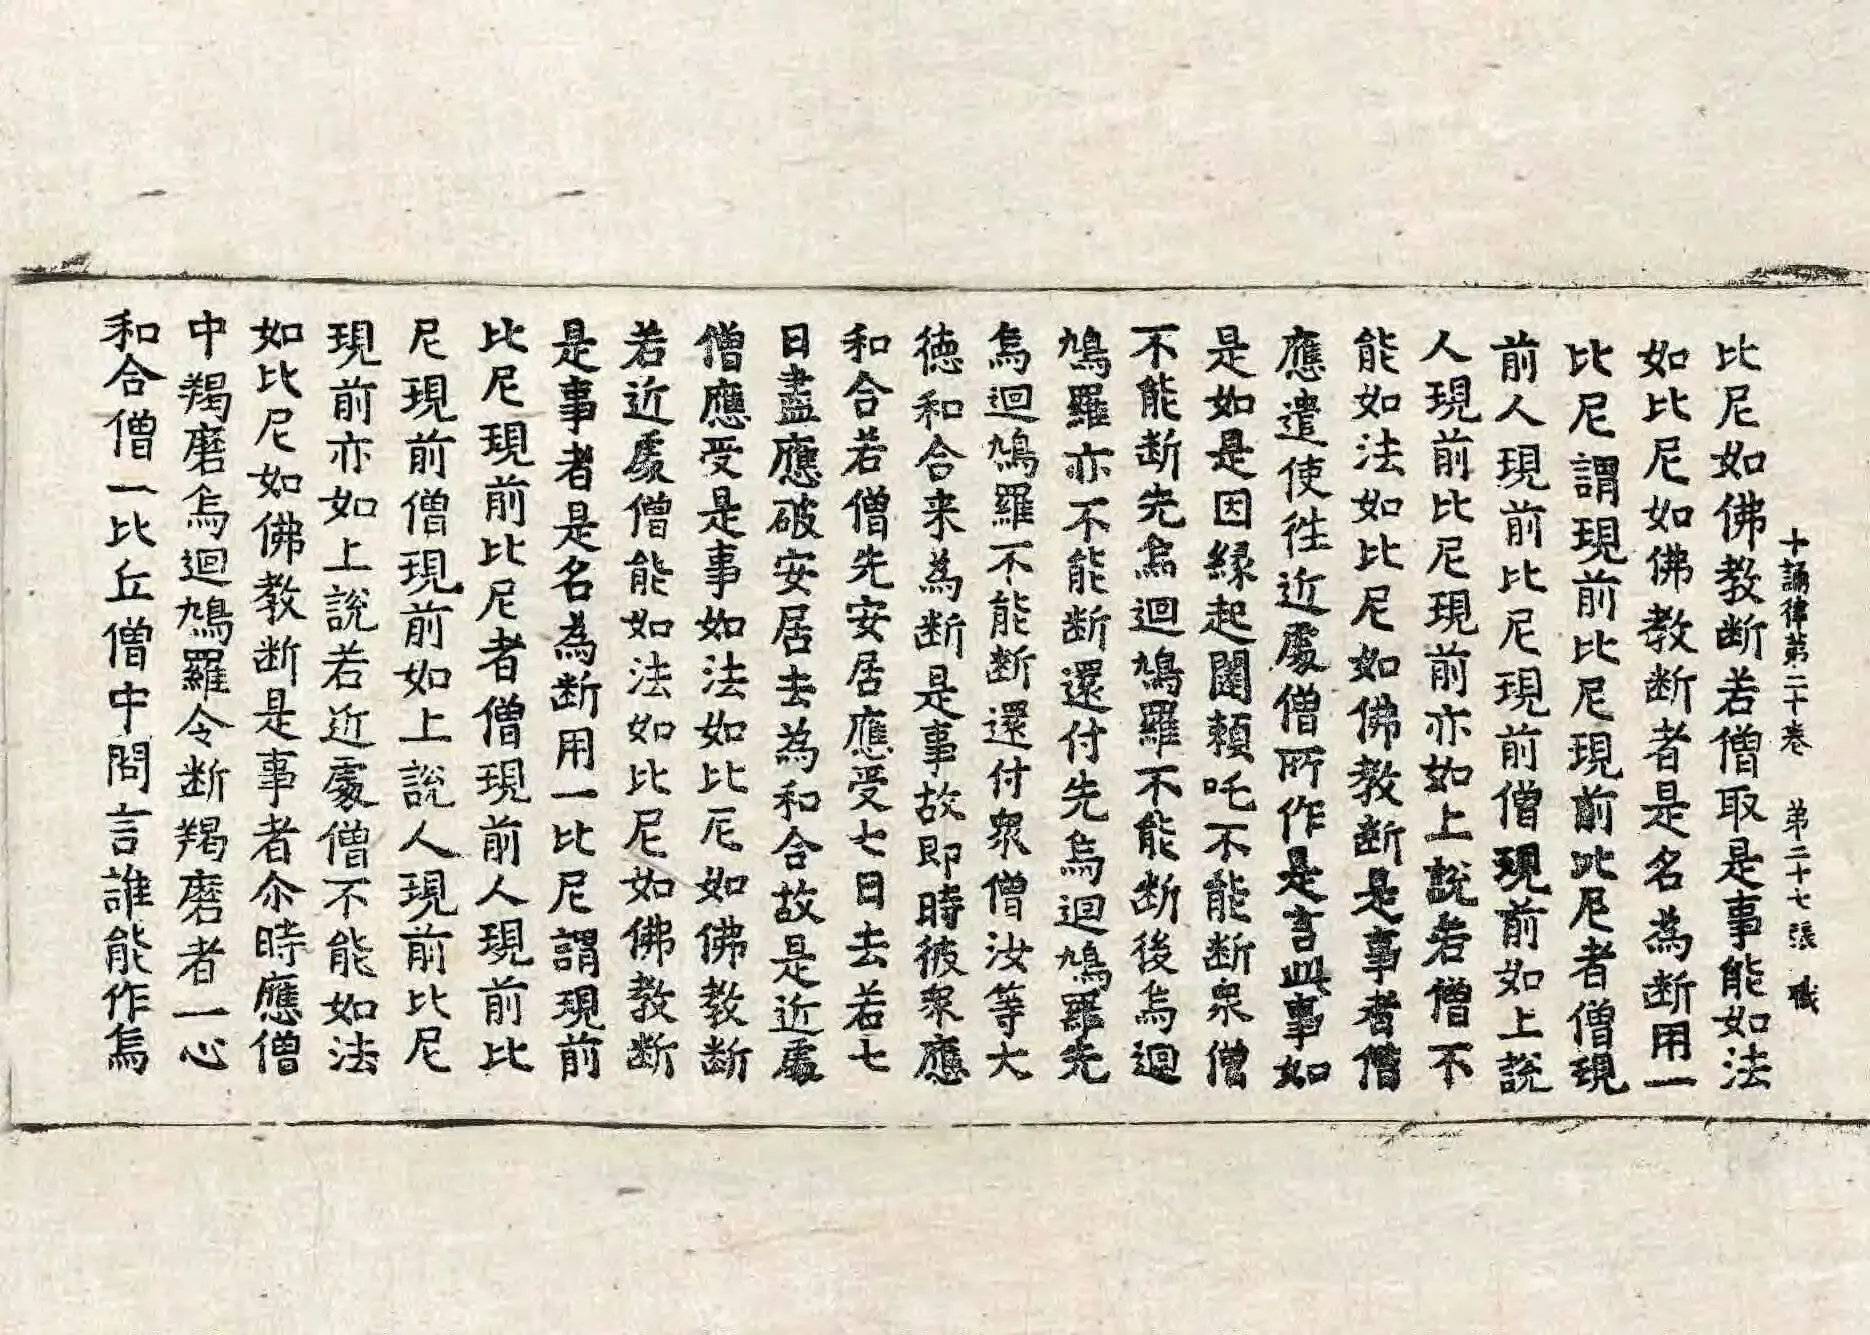 十誦律第二十卷　第二十七張　職
比尼如佛教断若僧取是事能如法
如比尼如佛教断者是名為断用一
比尼謂現前比尼現前比尼者僧現
前人現前比尼現前僧現前如上說
人現前比尼現前亦如上說若僧不
能如法如比尼如佛教断是事者僧
應遣使往近處僧所作是言此事如
是如是因縁起闥頼吒不能断衆僧
不能断先烏迴鳩羅不能断後烏迴
鳩羅亦不能断還付先烏迴鳩羅先
烏迴鳩羅不能断還付衆僧汝等大
徳和合来為断是事故即時彼衆應
和合若僧先安居應受七日去若七
日盡應破安居去為和合故是近處
僧應受是事如法如比尼如佛教断
若近處僧能如法如比尼如佛教断
是事者是名為断用一比尼謂現前
比尼現前比尼者僧現前人現前比
尼現前僧現前如上說人現前比尼
現前亦如上說若近處僧不能如法
如比尼如佛教断是事者尒時應僧
中羯磨烏迴鳩羅令断羯磨者一心
和合僧一比丘僧中問言誰能作烏